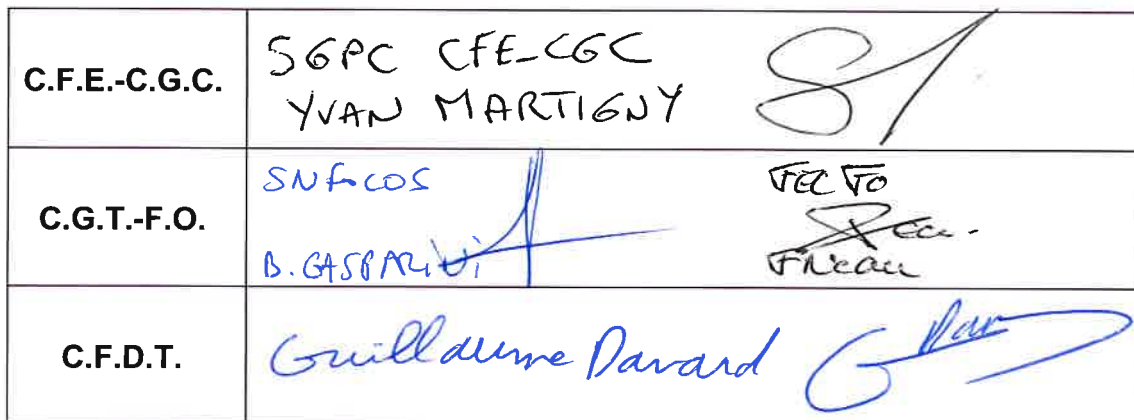 C.F.E.-C.G.C.
SGPC CFE-CGC
YVAN MARTIGNY
C.G.T.-F.O.
SNFOCOS
B. GASPARINI
FEC FO
C.F.D.T.
Guillaume Davard